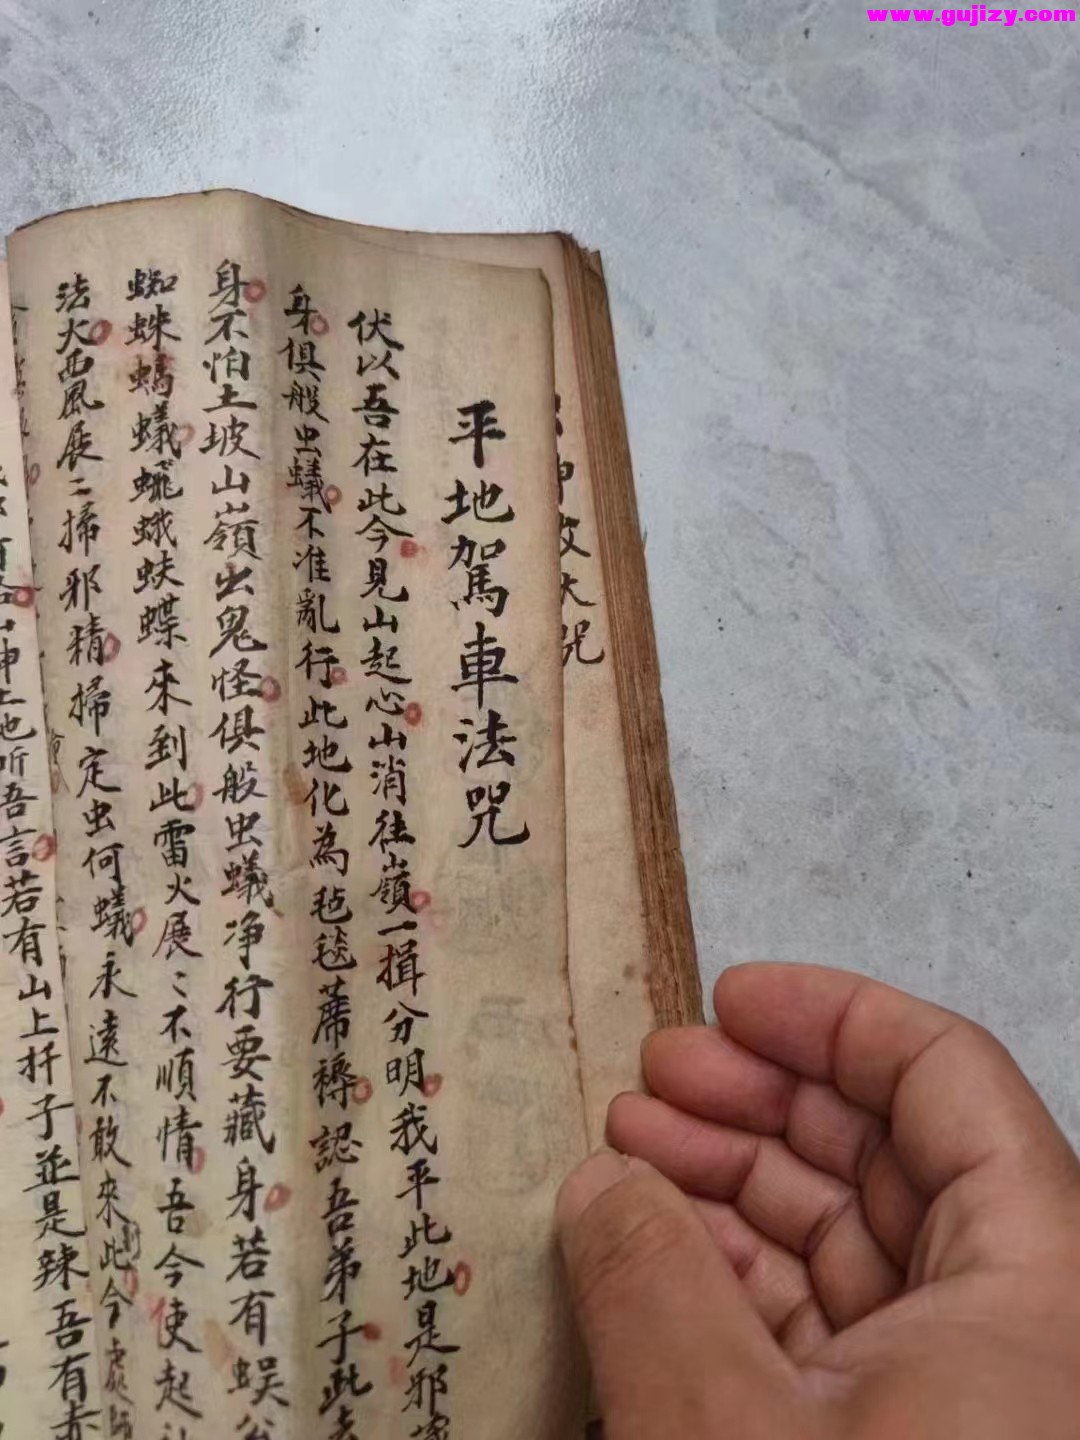 www.gujizy.com
平地駕車法咒
伏以吾在此今見山起心山消往嶺一揖分明我平此地是邪
身俱般虫蟻不准亂行此地化為毡毯蓆褥認吾弟子此去
身不怕土坡山嶺出鬼怪俱般虫蟻净行要藏身若有蜈公
蜘蛛螞蟻蛾蚨蝶來到此雷火展〻不順情吾今使起
法大西風展〻掃邪精掃定虫何蟻永遠不敢來此今
山神土地听吾言若有山上扦子並是辣吾有赤
大咒